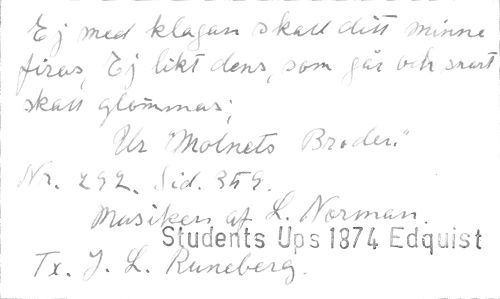 Ej med klagan skall ditt minne
firas, Ej likt dens, som går och snart
skall glömmas;
Ur "Molnets Broder."
Nr. 292. Sid. 359.
Musiken af L. Norman.
Students Ups 1874 Edquist
Tx. J. L. Runeberg.